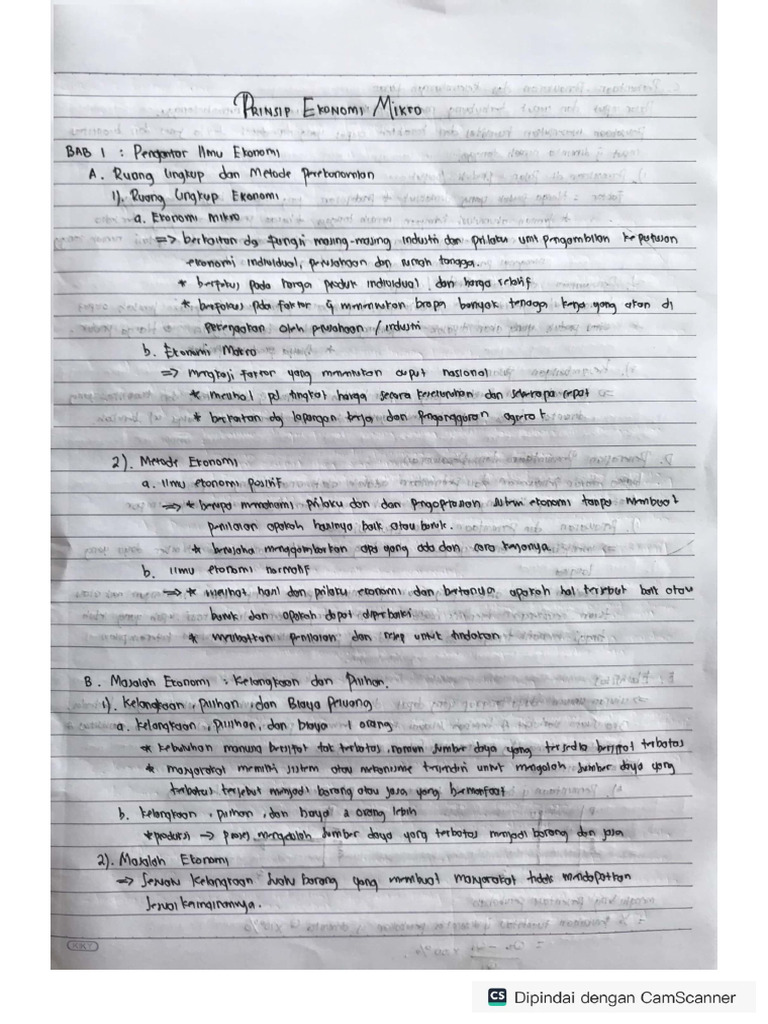 PRINSIP EKONOMI MIKRO
BAB 1 : Pengantar Ilmu Ekonomi
A. Ruang lingkup dan Metode Perekonomian
1). Ruang lingkup Ekonomi
a. Ekonomi mikro
=> berkaitan dg fungsi masing-masing industri dan prilaku unit pengambilan keputusan
ekonomi individual, perusahaan dan rumah tangga.
* berfokus pada harga produk individual dan harga relatif
* berfokus pda faktor yg menentukan brapa banyak tenaga kerja yang akan di
perkerjakan oleh perusahaan / industri
b. Ekonomi Makro
=> mengkaji faktor yang menentukan output nasional
* melihat pd tingkat harga secara keseluruhan dan seberapa cepat
* berkaitan dg lapangan kerja dan pengangguran agregat
2). Metode Ekonomi
a. Ilmu ekonomi positif
=> * berupa memahami prilaku dan dan pngoprasian sistem ekonomi tanpa membuat
penilaian apakah hasilnya baik atau buruk.
* berusaha menggambarkan apa yang ada dan cara kerjanya.
b. Ilmu ekonomi normatif
=> * melihat hasil dan prilaku economi dan bertanya, apakah hal tersebut baik atau
buruk dan apakah dapat diperbaiki
* melibatkan penilaian dan resep untuk tindakan
B. Masalah Economi : Kelangkaan dan Pilihan.
1). Kelangkaan, pilihan, dan Biaya Peluang
a. kelangkaan, pilihan, dan biaya 1 orang
* kebutuhan manusia bersifat tak terbatas, namun sumber daya yang tersedia bersifat terbatas
* masyarakat memiliki sistem atau mekanisme tersendiri untuk mengolah sumber daya yang
terbatas tersebut menjadi barang atau jasa yang bermanfaat
b. kelangkaan, pilihan, dan biaya 2 orang lebih
* produksi -> proses mengolah sumber daya yang terbatas menjadi barang dan jasa
2). Masalah Ekonomi
=> Sesuatu kelangkaan suatu barang yang membuat masyarakat tidak mendapatkan
sesuai keinginannya.
KKY
CS Dipindai dengan CamScanner